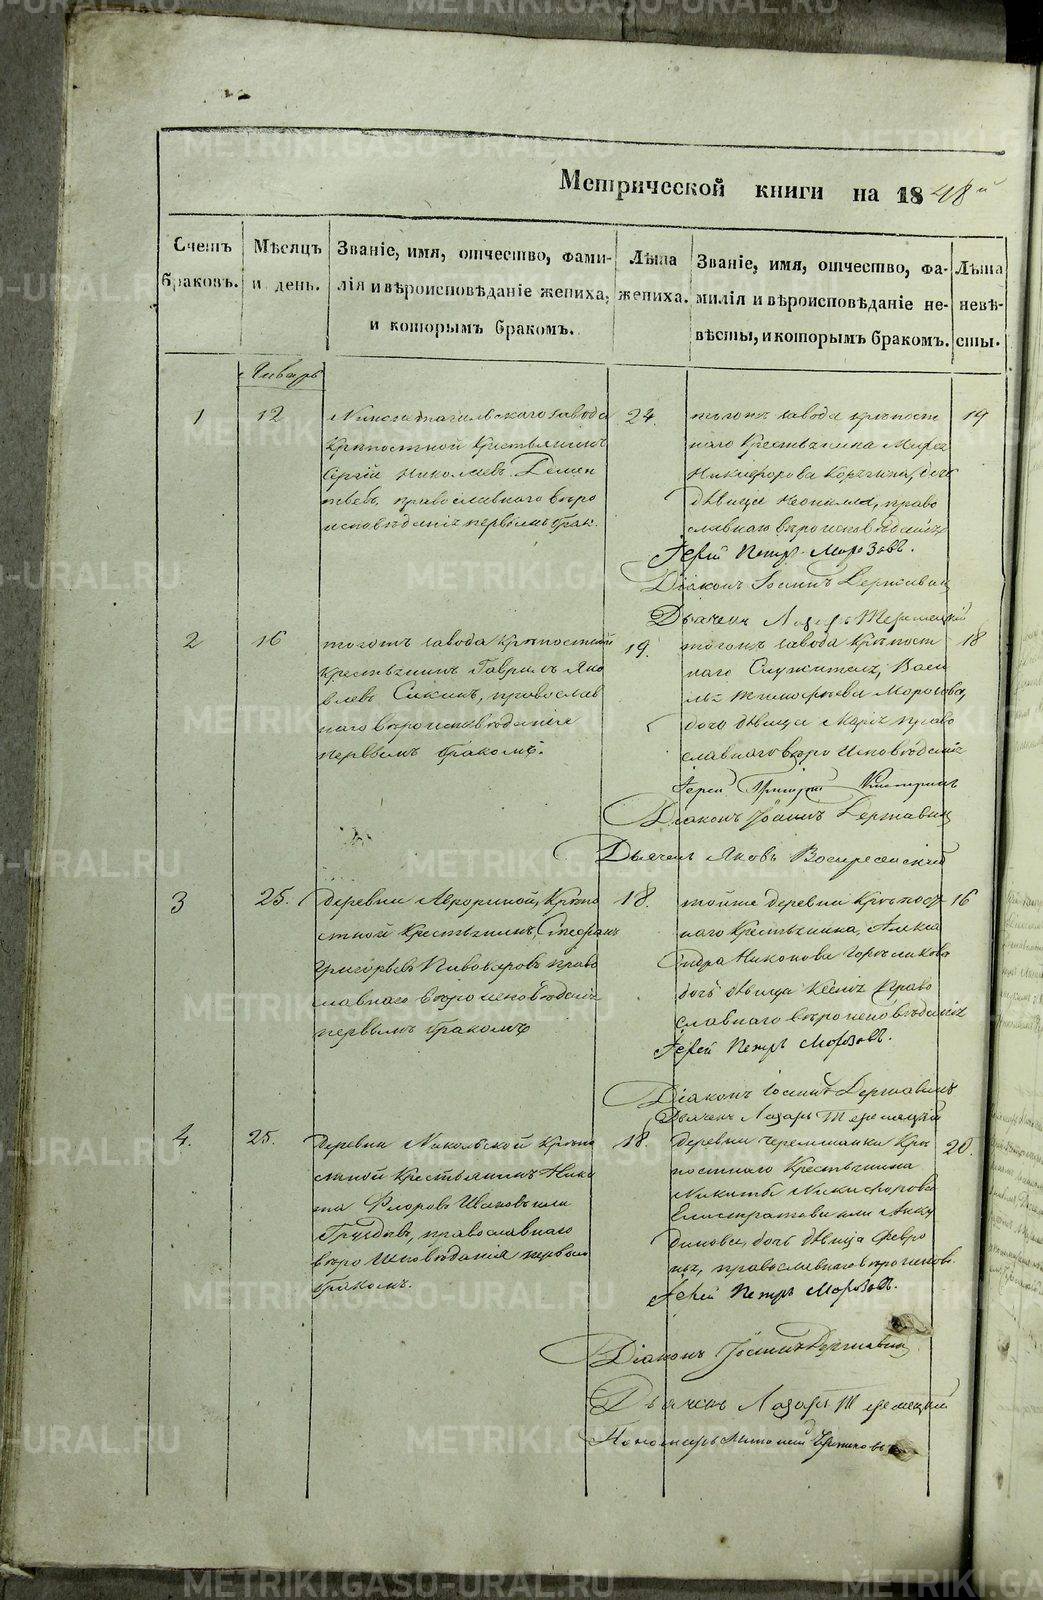 Метрической книги на 1848й
Счетъ браковъ.
Мѣсяцъ и день.
Званіе, имя, отчество, фами-
лія и вѣроисповѣданіе жениха,
и которымъ бракомъ.
Лѣта
жениха.
Званіе, имя, отчество, фа-
милія и вѣроисповѣданіе не-
вѣсты, и которымъ бракомъ.
Лѣта
невѣ-
сты.
Январь
1
12
Нижнетагильскаго завода
крѣпостной крестьянинъ
Сергій Николаевъ Демен
тьевъ, православнаго вѣро
исповѣданія первымъ брак.
24.
тогожъ завода крѣпост
наго крестьянина
Никифорова дочь
дѣвица Неонила, право
славнаго вѣроисповѣданія
19
Іерей Петръ Морозовъ.
Діаконъ Іоаннъ Державин
Дьячекъ Лазарь Теремецкій
2
16
тогожъ завода крѣпостной
крестьянинъ Гаврило Яко
влевъ Сикинъ, православ
наго вѣроисповѣданія
первымъ бракомъ.
19.
тогожъ завода крѣпост
наго служителя, Васи
лья Тимофѣева Морозова,
дочь дѣвица Марія право
славнаго вѣро исповѣданія
18
Іерей Григорій
Діаконъ Іоаннъ Державин
Дьячекъ Яковъ Воскресенскій
3
25.
деревни Аврориной, Крѣпо
стной Крестьянинъ, Стефанъ
Григорьевъ Пивоваровъ право
славнаго вѣроисповѣданія
первымъ бракомъ
18.
тойже деревни Крѣпост
наго Крестьянина, Алекса
ндра Никонова
дочь дѣвица Ксенія право
славнаго вѣроисповѣданія
16
Іерей Петръ Морозовъ.
Діаконъ Іоаннъ Державинъ
Дьячекъ Лазарь Теремецкій
4.
25.
деревни Никольской крѣпо
стной крестьянинъ Ники
та Флоровъ или
Груздевъ, православнаго
вѣро исповѣданія первымъ
бракомъ.
18.
деревни Черемшанки Крѣ
постнаго Крестьянина
Никиты Никифорова
Елистратова или Анку
динова, дочь дѣвица Февро
нья, православнаго вѣроисповѣ.
20.
Іерей Петръ Морозовъ.
Діаконъ Іоаннъ Державин
Дьячекъ Лазарь Теремецкій
Пономарь
METRIKI.GASO-URAL.RU